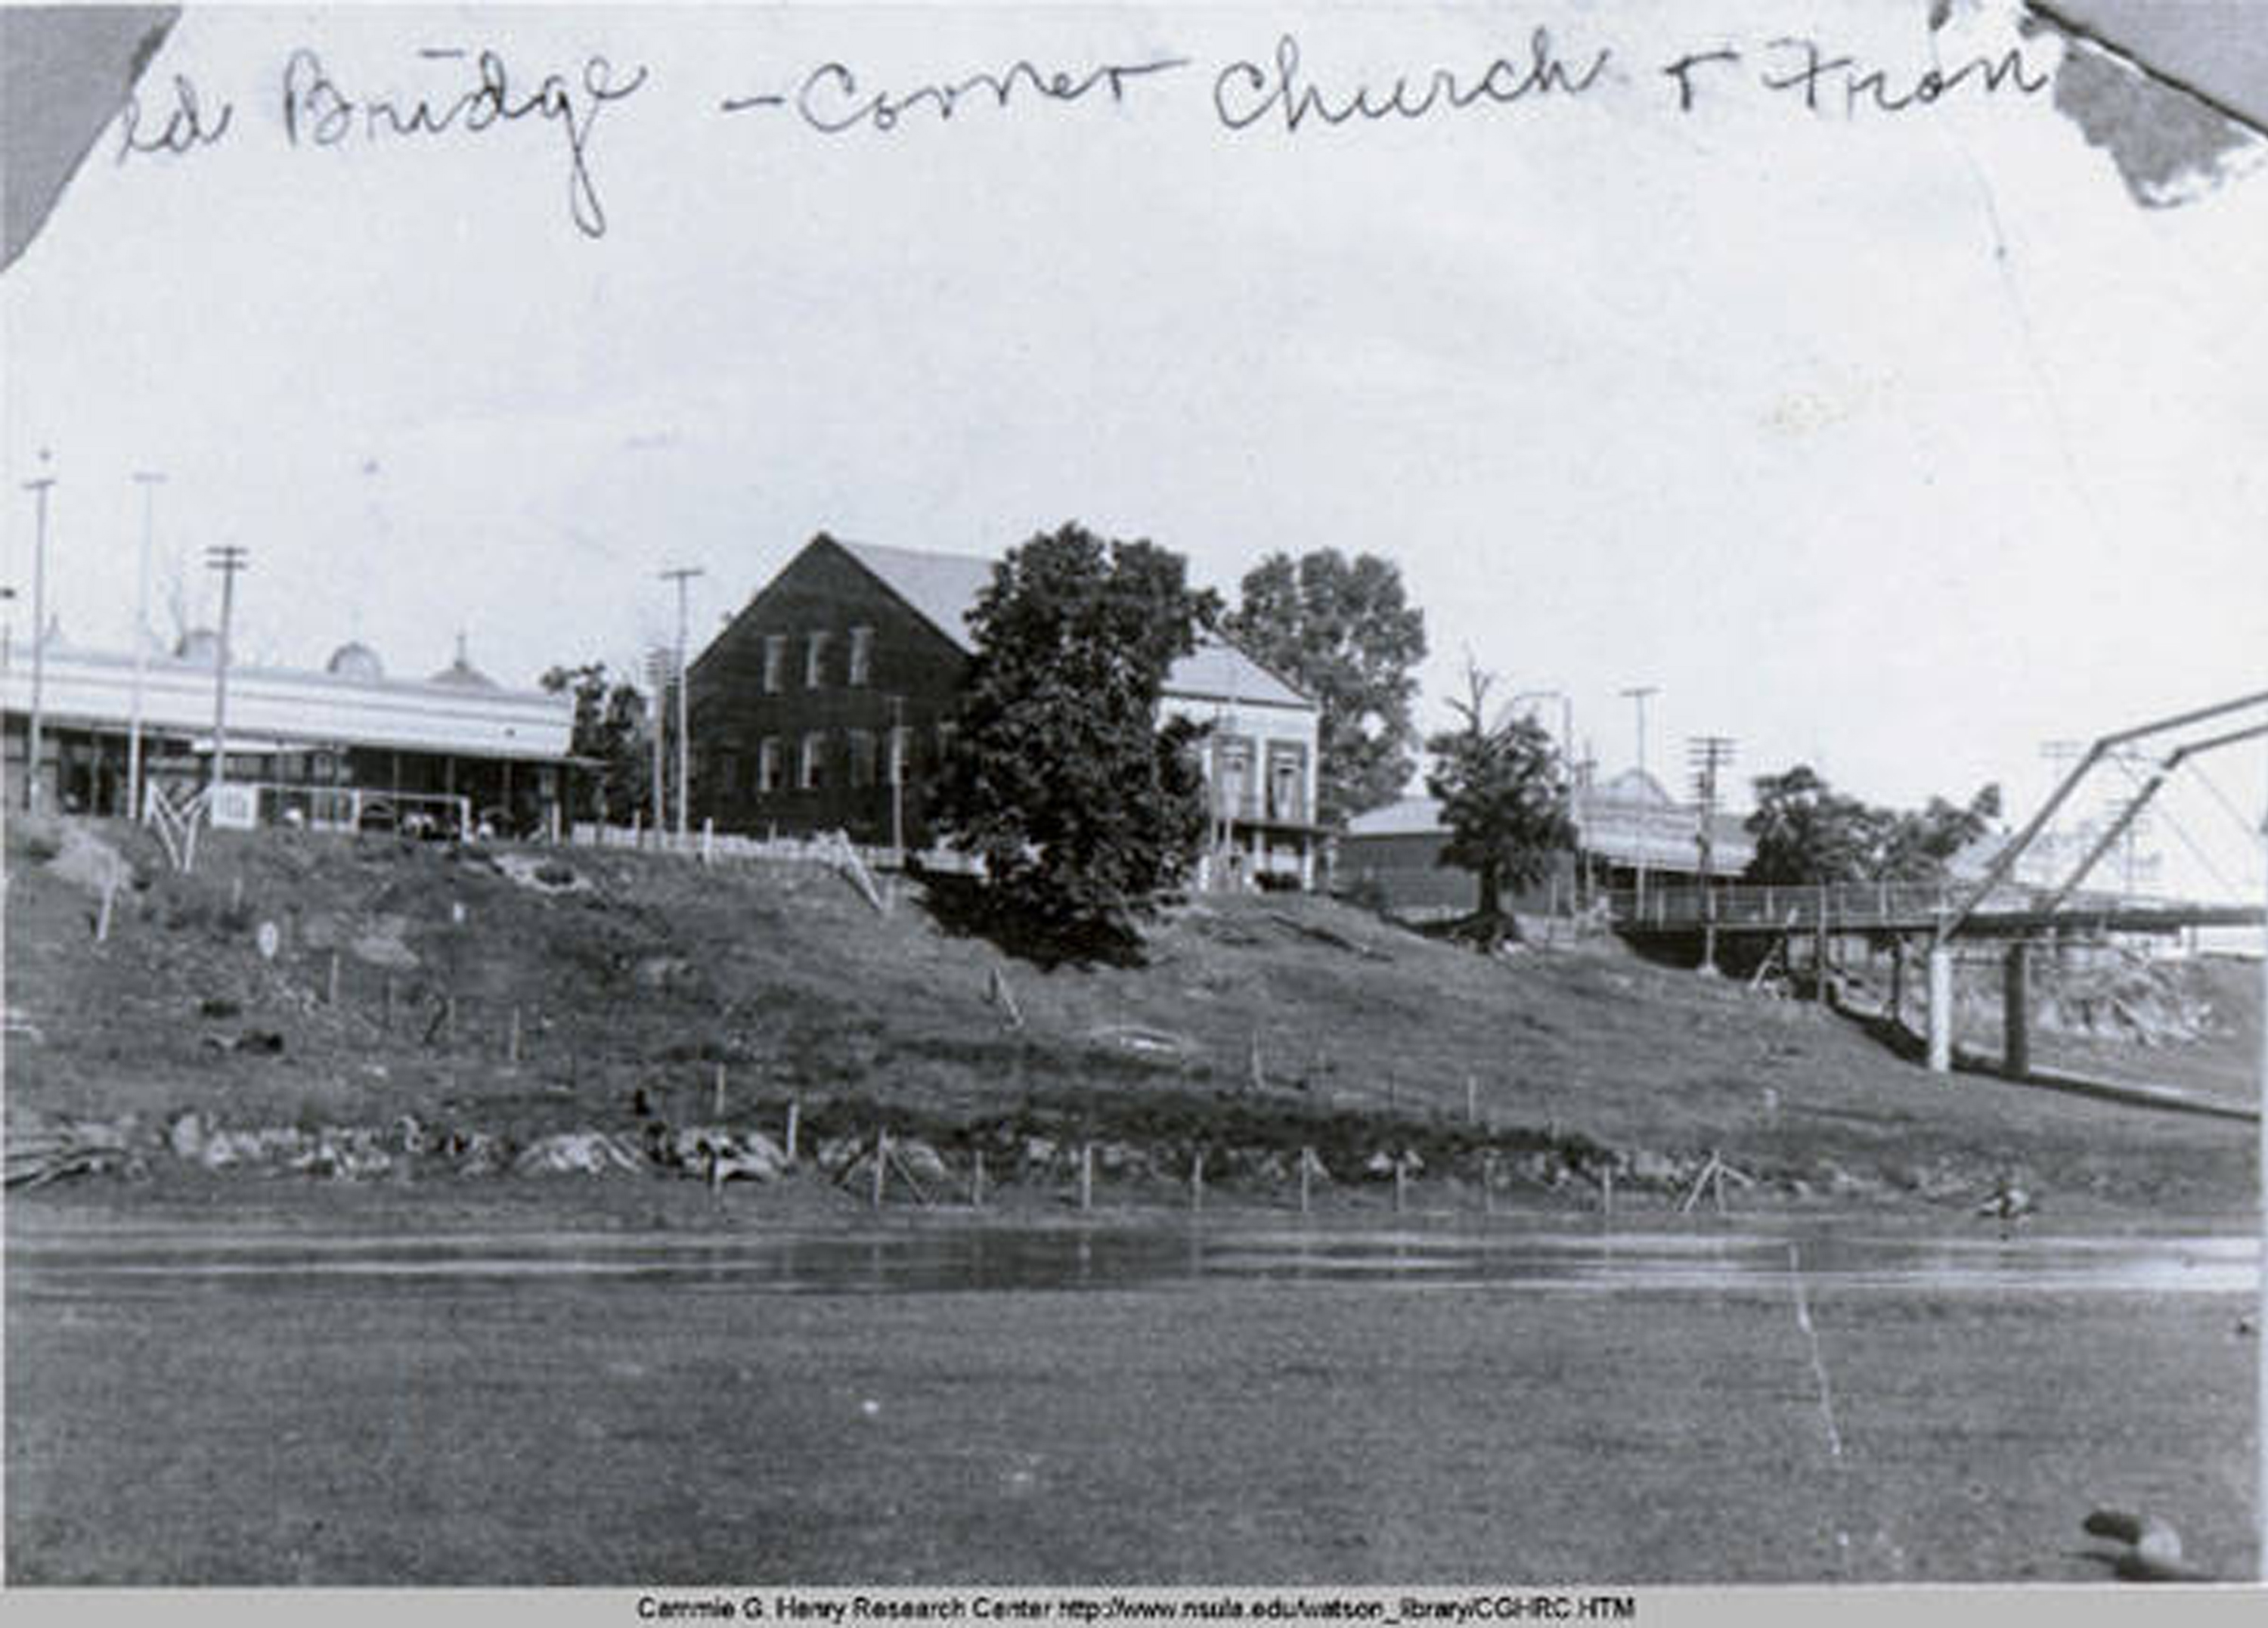 ld Bridge - Corner Church & Fron
Cammie G. Henry Research Center http://www.nsula.edu/watson_library/CGHRC.HTM